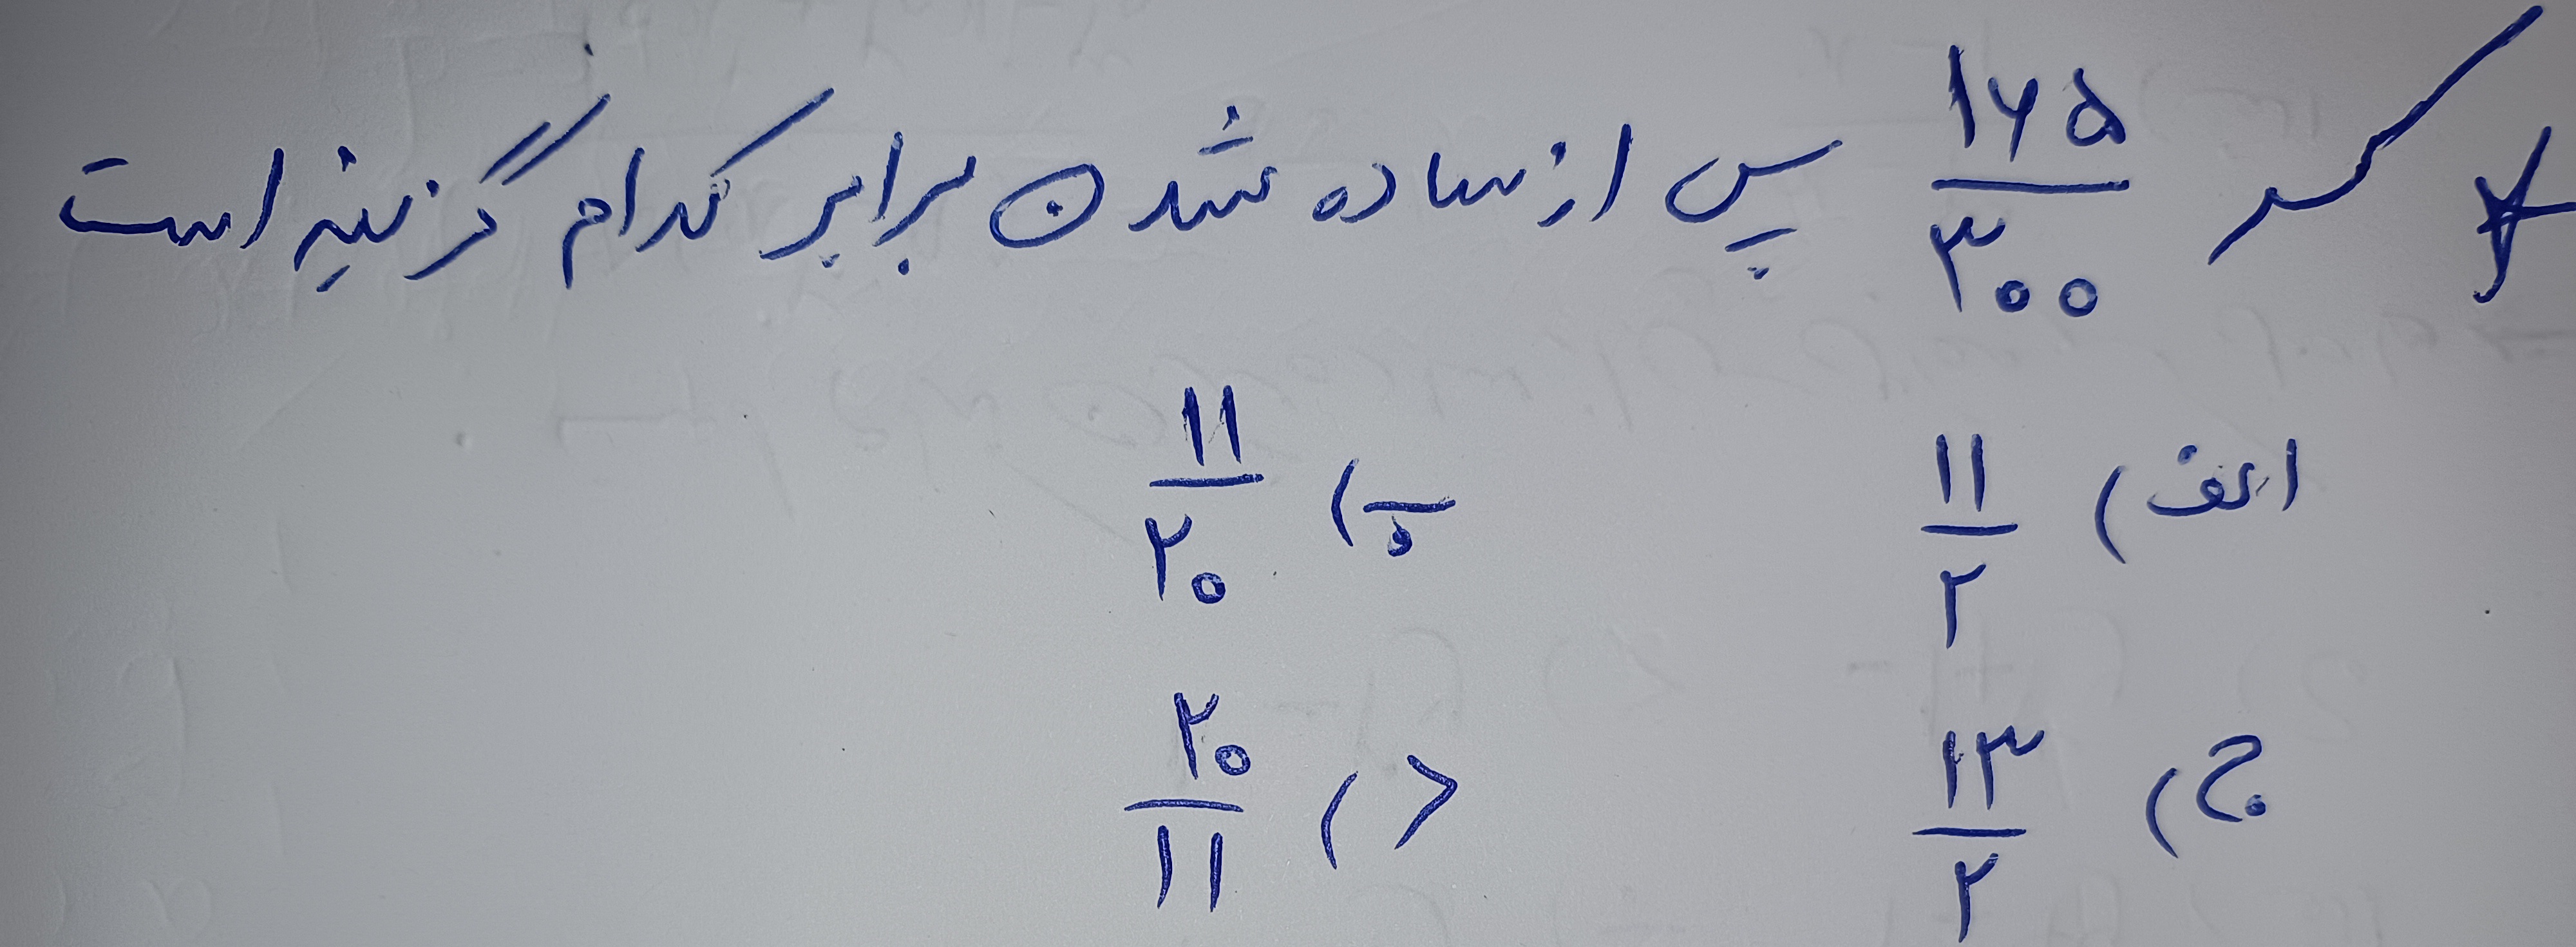 * کسر ۱۶۵/۳۰۰ پس از ساده شدن برابر کدام گزینه است
الف) ۱۱/۲ ب) ۱۱/۲۰
ج) ۱۳/۲ د) ۲۰/۱۱